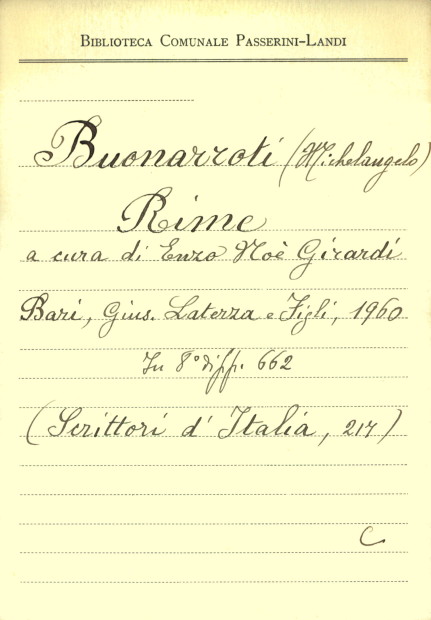 BIBLIOTECA COMUNALE PASSERINI-LANDI
Buonarroti (Michelangelo)
Rime
a cura di Enzo Noè Girardi
Bari, Gius. Laterza e Figli, 1960
In 8° di pp. 662
(Scrittori d'Italia, 217)
C